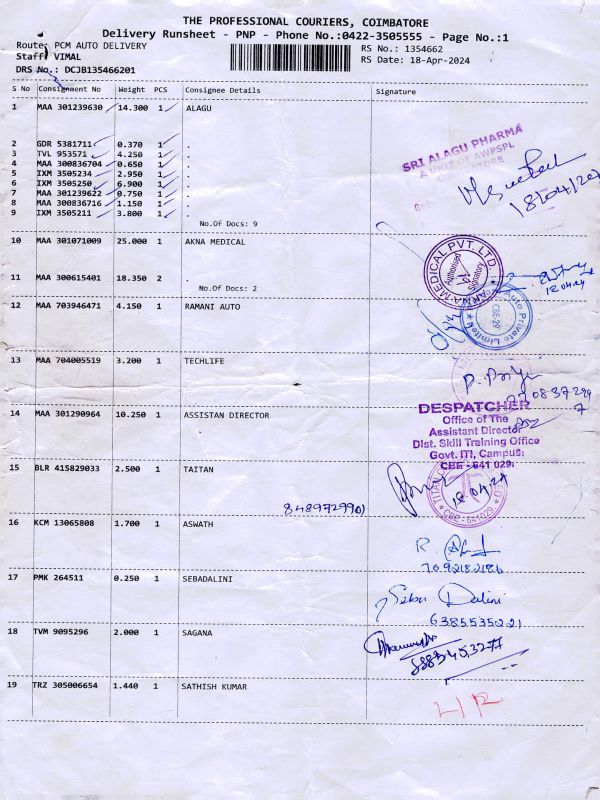 THE PROFESSIONAL COURIERS, COIMBATORE
Delivery Runsheet - PNP - Phone No.:0422-3505555 - Page No.:1
Route: PCM AUTO DELIVERY
RS No.: 1354662
Staff: VIMAL
RS Date: 18-Apr-2024
DRS No.: DCJB135466201
S No Consignment No Weight PCS Consignee Details Signature
1 MAA 301239630 14.300 1 ALAGU
2 GDR 5381711 0.370 1 .
3 TVL 953571 4.250 1 .
4 MAA 300836704 0.650 1 .
5 IXM 3505234 2.950 1 .
6 IXM 3505250 6.900 1 .
7 MAA 301239622 0.750 1 .
8 MAA 300836716 1.150 1 .
9 IXM 3505211 3.800 1 .
No.Of Docs: 9
SRI ALAGU PHARMA
A UNIT OF AWPSPL
18/04/24
10 MAA 301071009 25.000 1 AKNA MEDICAL
AKNA MEDICAL PVT. LTD.
Authorised Signatory
11 MAA 300615401 18.350 2 .
No.Of Docs: 2
18.04.24
12 MAA 703946471 4.150 1 RAMANI AUTO
Auto Private Limited
CBE-29
13 MAA 704005519 3.200 1 TECHLIFE
14 MAA 301290964 10.250 1 ASSISTAN DIRECTOR
DESPATCHER
Office of The
Assistant Director
Dist. Skill Training Office
Govt. ITI, Campus:
CBE - 641 029.
15 BLR 415829033 2.500 1 TAITAN
8489729901
18.04.24
CBE-641029.
16 KCM 13065808 1.700 1 ASWATH
17 PMK 264511 0.250 1 SEBADALINI
Seba Dalini
6385535221
18 TVM 9095296 2.000 1 SAGANA
19 TRZ 305006654 1.440 1 SATHISH KUMAR